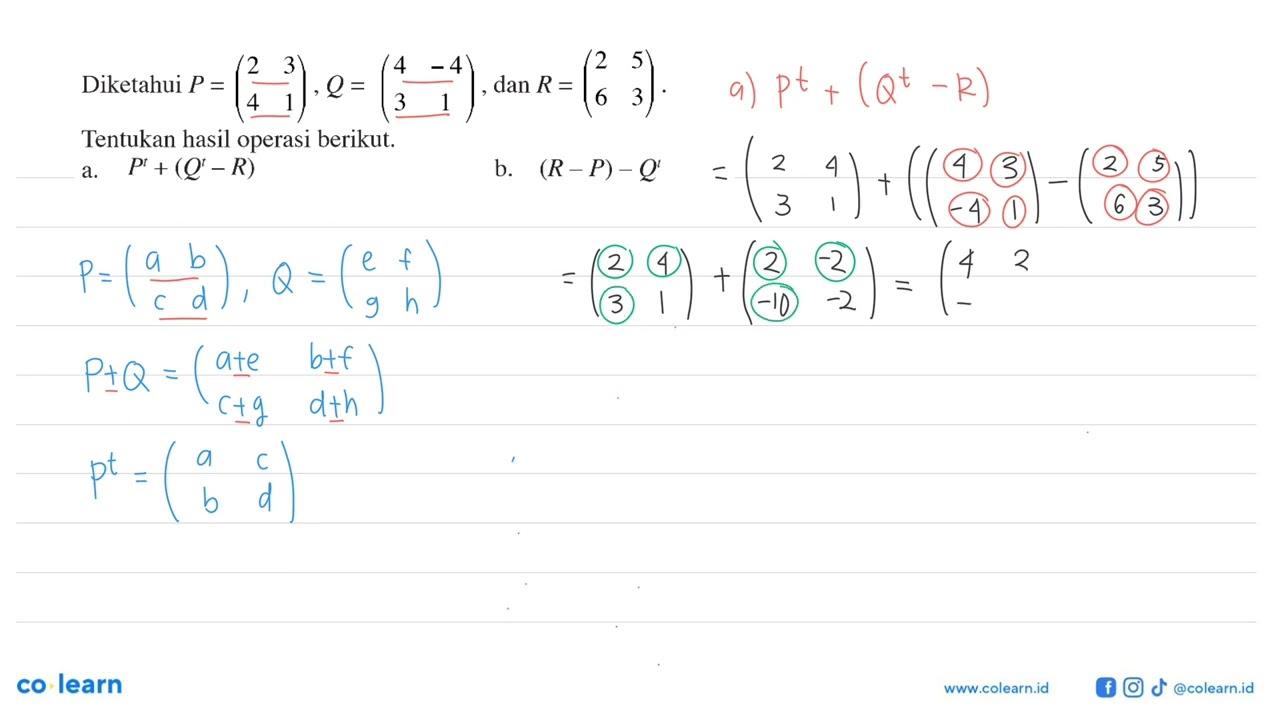 Diketahui P = (2 3 / 4 1), Q = (4 -4 / 3 1), dan R = (2 5 / 6 3).
Tentukan hasil operasi berikut.
a. Pᵗ + (Qᵗ – R)
b. (R – P) – Qᵗ
a) Pᵗ + (Qᵗ - R)
= (2 4 / 3 1) + ((4 3 / -4 1) - (2 5 / 6 3))
= (2 4 / 3 1) + (2 -2 / -10 -2) = (4 2 / -
P = (a b / c d), Q = (e f / g h)
P±Q = (a±e b±f / c±g d±h)
Pᵗ = (a c / b d)
co learn
www.colearn.id
@colearn.id